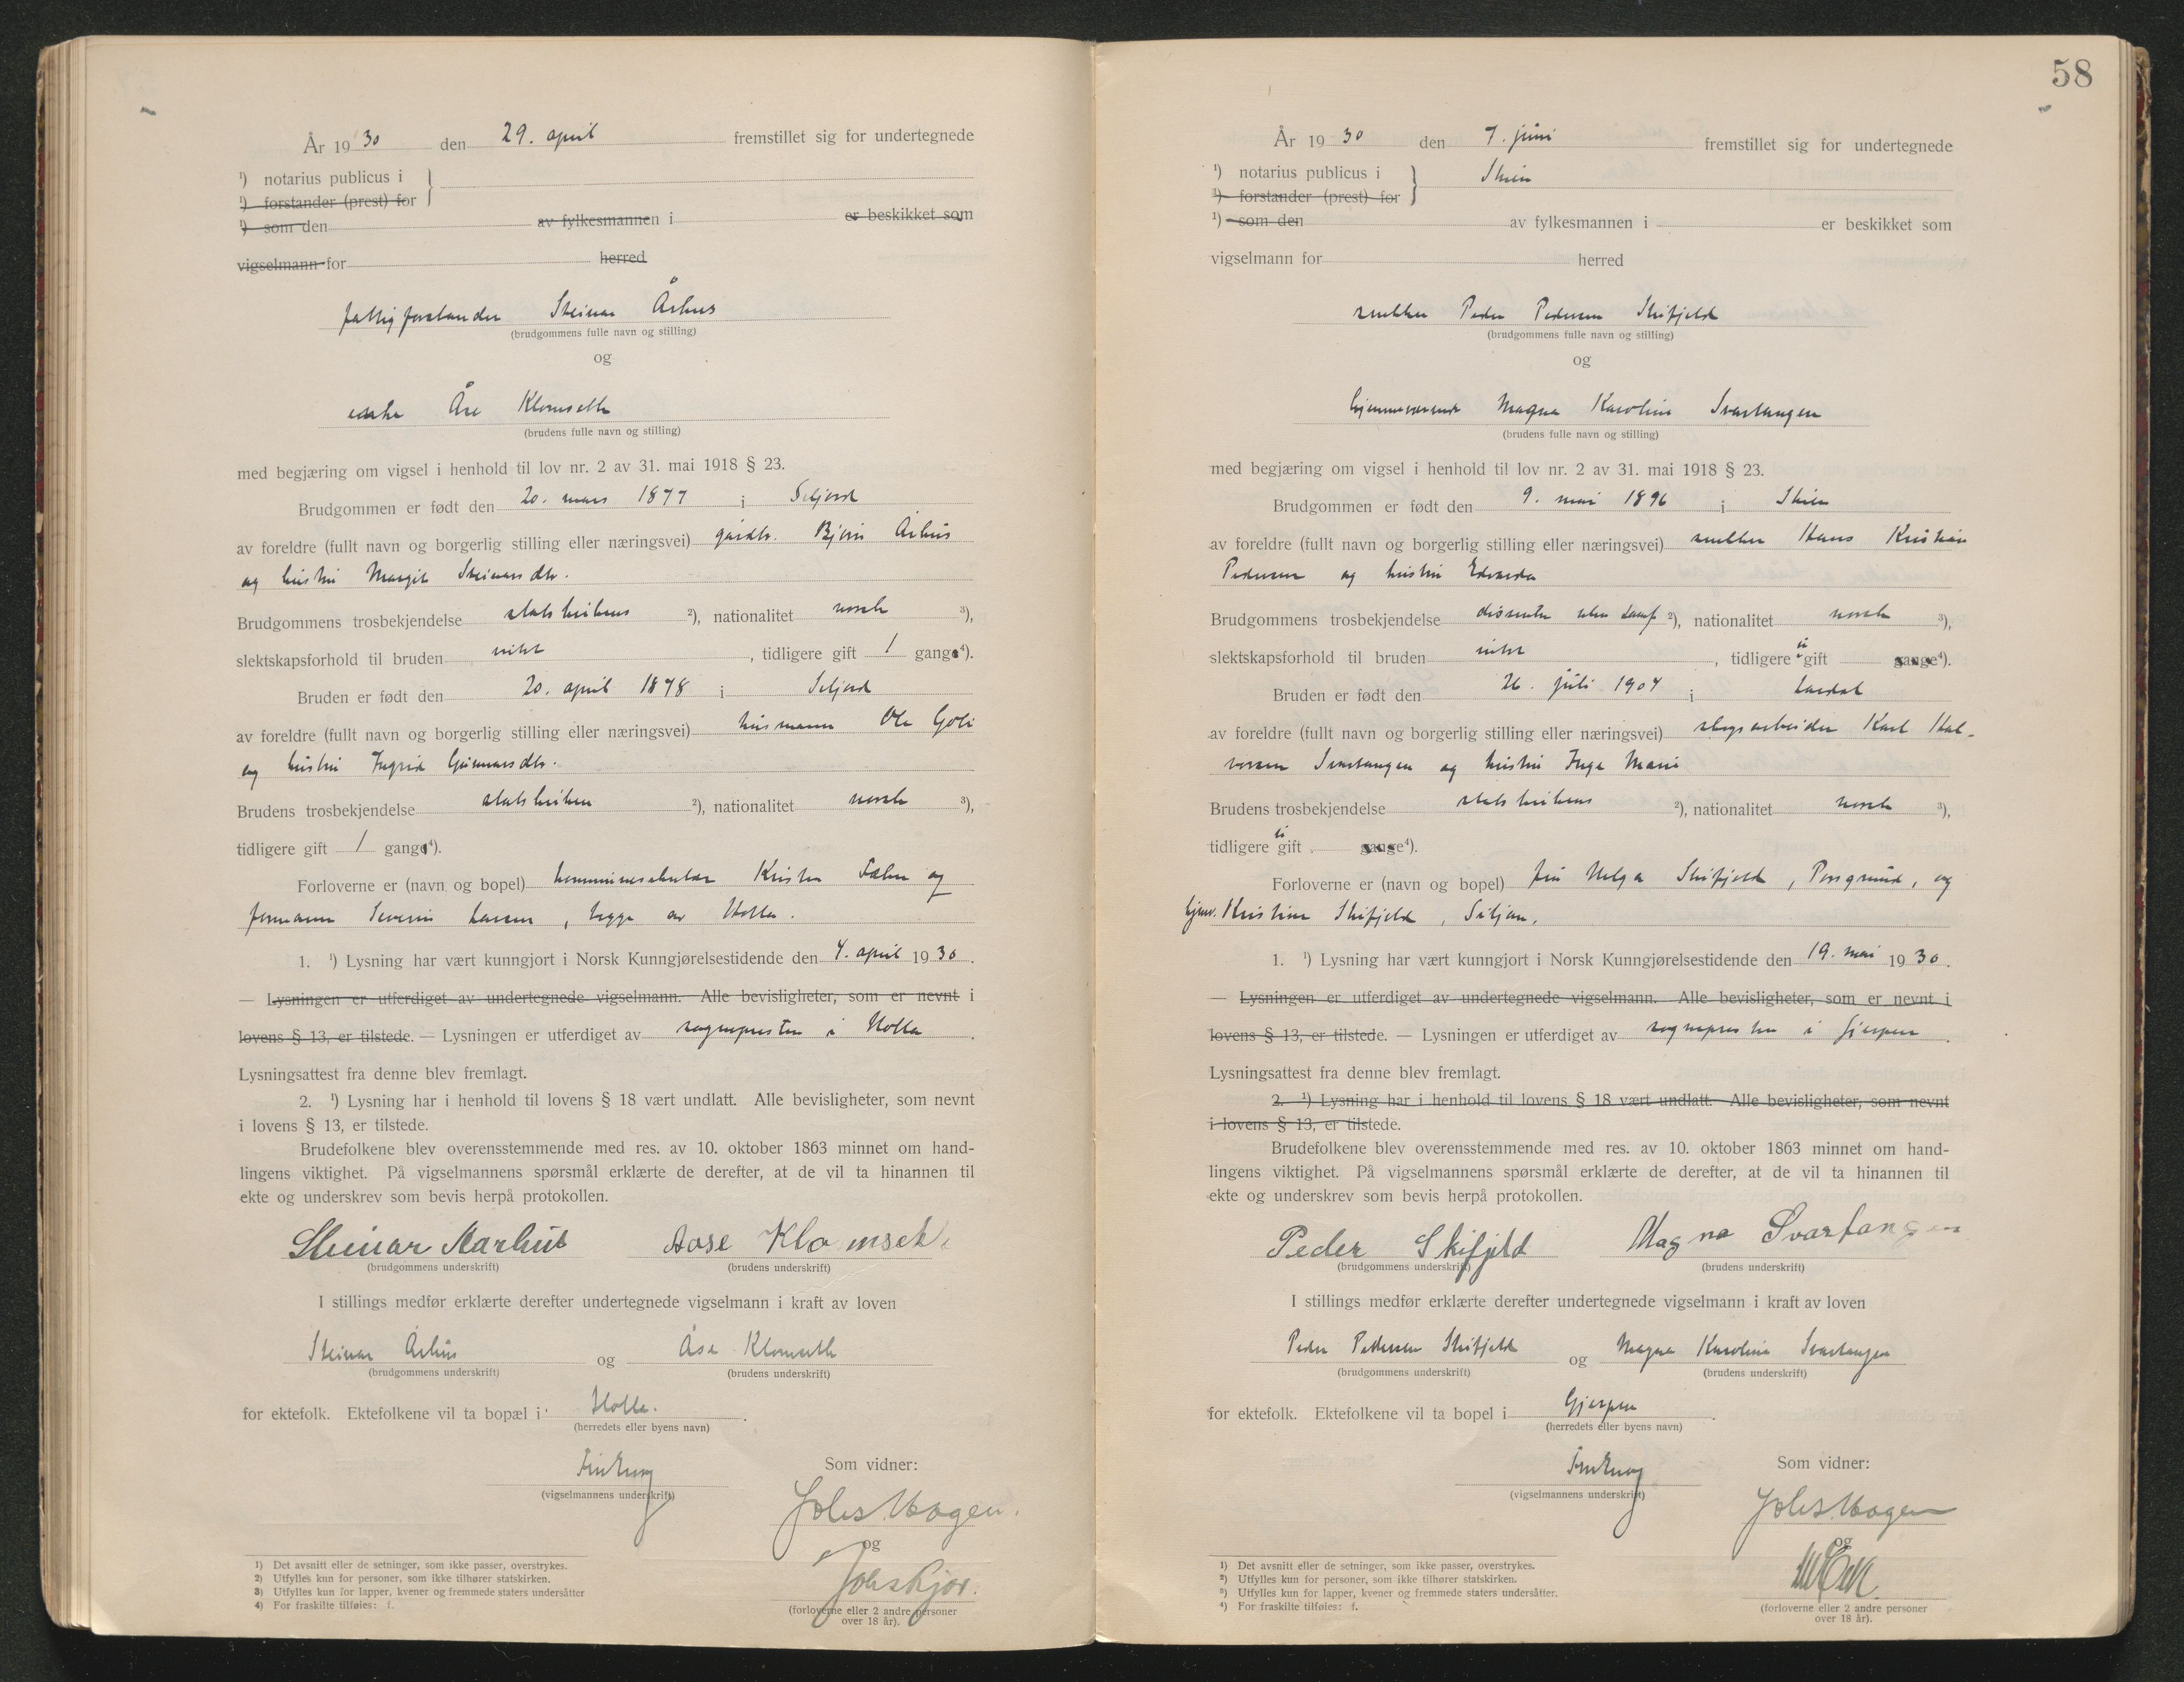 År 1930 den 29. april fremstillet sig for undertegnede
¹) notarius publicus i
¹) forstander (prest) for
¹) som den av fylkesmannen i er beskikket som
vigselmann for herred
fattigforstander Steinar Århus
(brudgommens fulle navn og stilling)
og
enke Åse Klomseth
(brudens fulle navn og stilling)
med begjæring om vigsel i henhold til lov nr. 2 av 31. mai 1918 § 23.
Brudgommen er født den 20. mars 1877 i Seljord
av foreldre (fullt navn og borgerlig stilling eller næringsvei) gårdbr. Bjørn Århus
og hustru Margit Steinarsdtr.
Brudgommens trosbekjendelse statskirkens ²), nationalitet norsk ³),
slektskapsforhold til bruden intet, tidligere gift 1 gang ⁴).
Bruden er født den 20. april 1878 i Seljord
av foreldre (fullt navn og borgerlig stilling eller næringsvei) husmann Ole Goli
og hustru Ingrid Gunnarsdtr.
Brudens trosbekjendelse statskirken ²), nationalitet norsk ³),
tidligere gift 1 gang ⁴).
Forloverne er (navn og bopel) kommunesekretær Kristen og
formann Severin Larsen, begge av Holla.
1. ¹) Lysning har vært kunngjort i Norsk Kunngjørelsestidende den 4. april 1930.
— Lysningen er utferdiget av undertegnede vigselmann. Alle bevisligheter, som er nevnt i
lovens § 13, er tilstede. — Lysningen er utferdiget av sognepresten i Holla.
Lysningsattest fra denne blev fremlagt.
2. ¹) Lysning har i henhold til lovens § 18 vært undlatt. Alle bevisligheter, som nevnt
i lovens § 13, er tilstede.
Brudefolkene blev overensstemmende med res. av 10. oktober 1863 minnet om hand-
lingens viktighet. På vigselmannens spørsmål erklærte de derefter, at de vil ta hinannen til
ekte og underskrev som bevis herpå protokollen.
Steinar Aarhus Aase Klomseth
(brudgommens underskrift) (brudens underskrift)
I stillings medfør erklærte derefter undertegnede vigselmann i kraft av loven
Steinar Århus og Åse Klomseth
(brudgommens underskrift) (brudens underskrift)
for ektefolk. Ektefolkene vil ta bopæl i Holla.
(herredets eller byens navn)
(vigselmannens underskrift)
Som vidner:
Johs Hagen.
og
(forloverne eller 2 andre personer
over 18 år).
1) Det avsnitt eller de setninger, som ikke passer, overstrykes.
2) Utfylles kun for personer, som ikke tilhører statskirken.
3) Utfylles kun for lapper, kvener og fremmede staters undersåtter
4) For fraskilte tilføies: f.
58
År 1930 den 7. juni fremstillet sig for undertegnede
¹) notarius publicus i Skien
¹) forstander (prest) for
¹) som den av fylkesmannen i er beskikket som
vigselmann for herred
snekker Peder Pedersen Skifjeld
(brudgommens fulle navn og stilling)
og
hjemmeværende Magna Karoline Svartangen
(brudens fulle navn og stilling)
med begjæring om vigsel i henhold til lov nr. 2 av 31. mai 1918 § 23.
Brudgommen er født den 9. mai 1896 i Skien
av foreldre (fullt navn og borgerlig stilling eller næringsvei) snekker Hans Kristian
Pedersen og hustru Edvarda
Brudgommens trosbekjendelse dissenter uten samf. ²), nationalitet norsk ³),
slektskapsforhold til bruden intet, tidligere ei gift gange ⁴).
Bruden er født den 26. juli 1904 i Lardal
av foreldre (fullt navn og borgerlig stilling eller næringsvei) skogsarbeider Karl Hal-
vorsen Svartangen og hustru Inga Marie
Brudens trosbekjendelse statskirkens ²), nationalitet norsk ³),
tidligere ei gift gange ⁴).
Forloverne er (navn og bopel) fru Helga Skifjeld, Porsgrund, og
hjemv. Kristine Skifjeld, Siljan.
1. ¹) Lysning har vært kunngjort i Norsk Kunngjørelsestidende den 19. mai 1930.
— Lysningen er utferdiget av undertegnede vigselmann. Alle bevisligheter, som er nevnt i
lovens § 13, er tilstede. — Lysningen er utferdiget av sognepresten i Gjerpen.
Lysningsattest fra denne blev fremlagt.
2. ¹) Lysning har i henhold til lovens § 18 vært undlatt. Alle bevisligheter, som nevnt
i lovens § 13, er tilstede.
Brudefolkene blev overensstemmende med res. av 10. oktober 1863 minnet om hand-
lingens viktighet. På vigselmannens spørsmål erklærte de derefter, at de vil ta hinannen til
ekte og underskrev som bevis herpå protokollen.
Peder Skifjeld Magna Svartangen
(brudgommens underskrift) (brudens underskrift)
I stillings medfør erklærte derefter undertegnede vigselmann i kraft av loven
Peder Pedersen Skifjeld og Magna Karoline Svartangen
(brudgommens underskrift) (brudens underskrift)
for ektefolk. Ektefolkene vil ta bopel i Gjerpen.
(herredets eller byens navn)
(vigselmannens underskrift)
Som vidner:
Johs Hagen
og
(forloverne eller 2 andre personer
over 18 år).
1) Det avsnitt eller de setninger, som ikke passer, overstrykes.
2) Utfylles kun for personer, som ikke tilhører statskirken.
3) Utfylles kun for lapper, kvener og fremmede staters undersåtter.
4) For fraskilte tilføies: f.